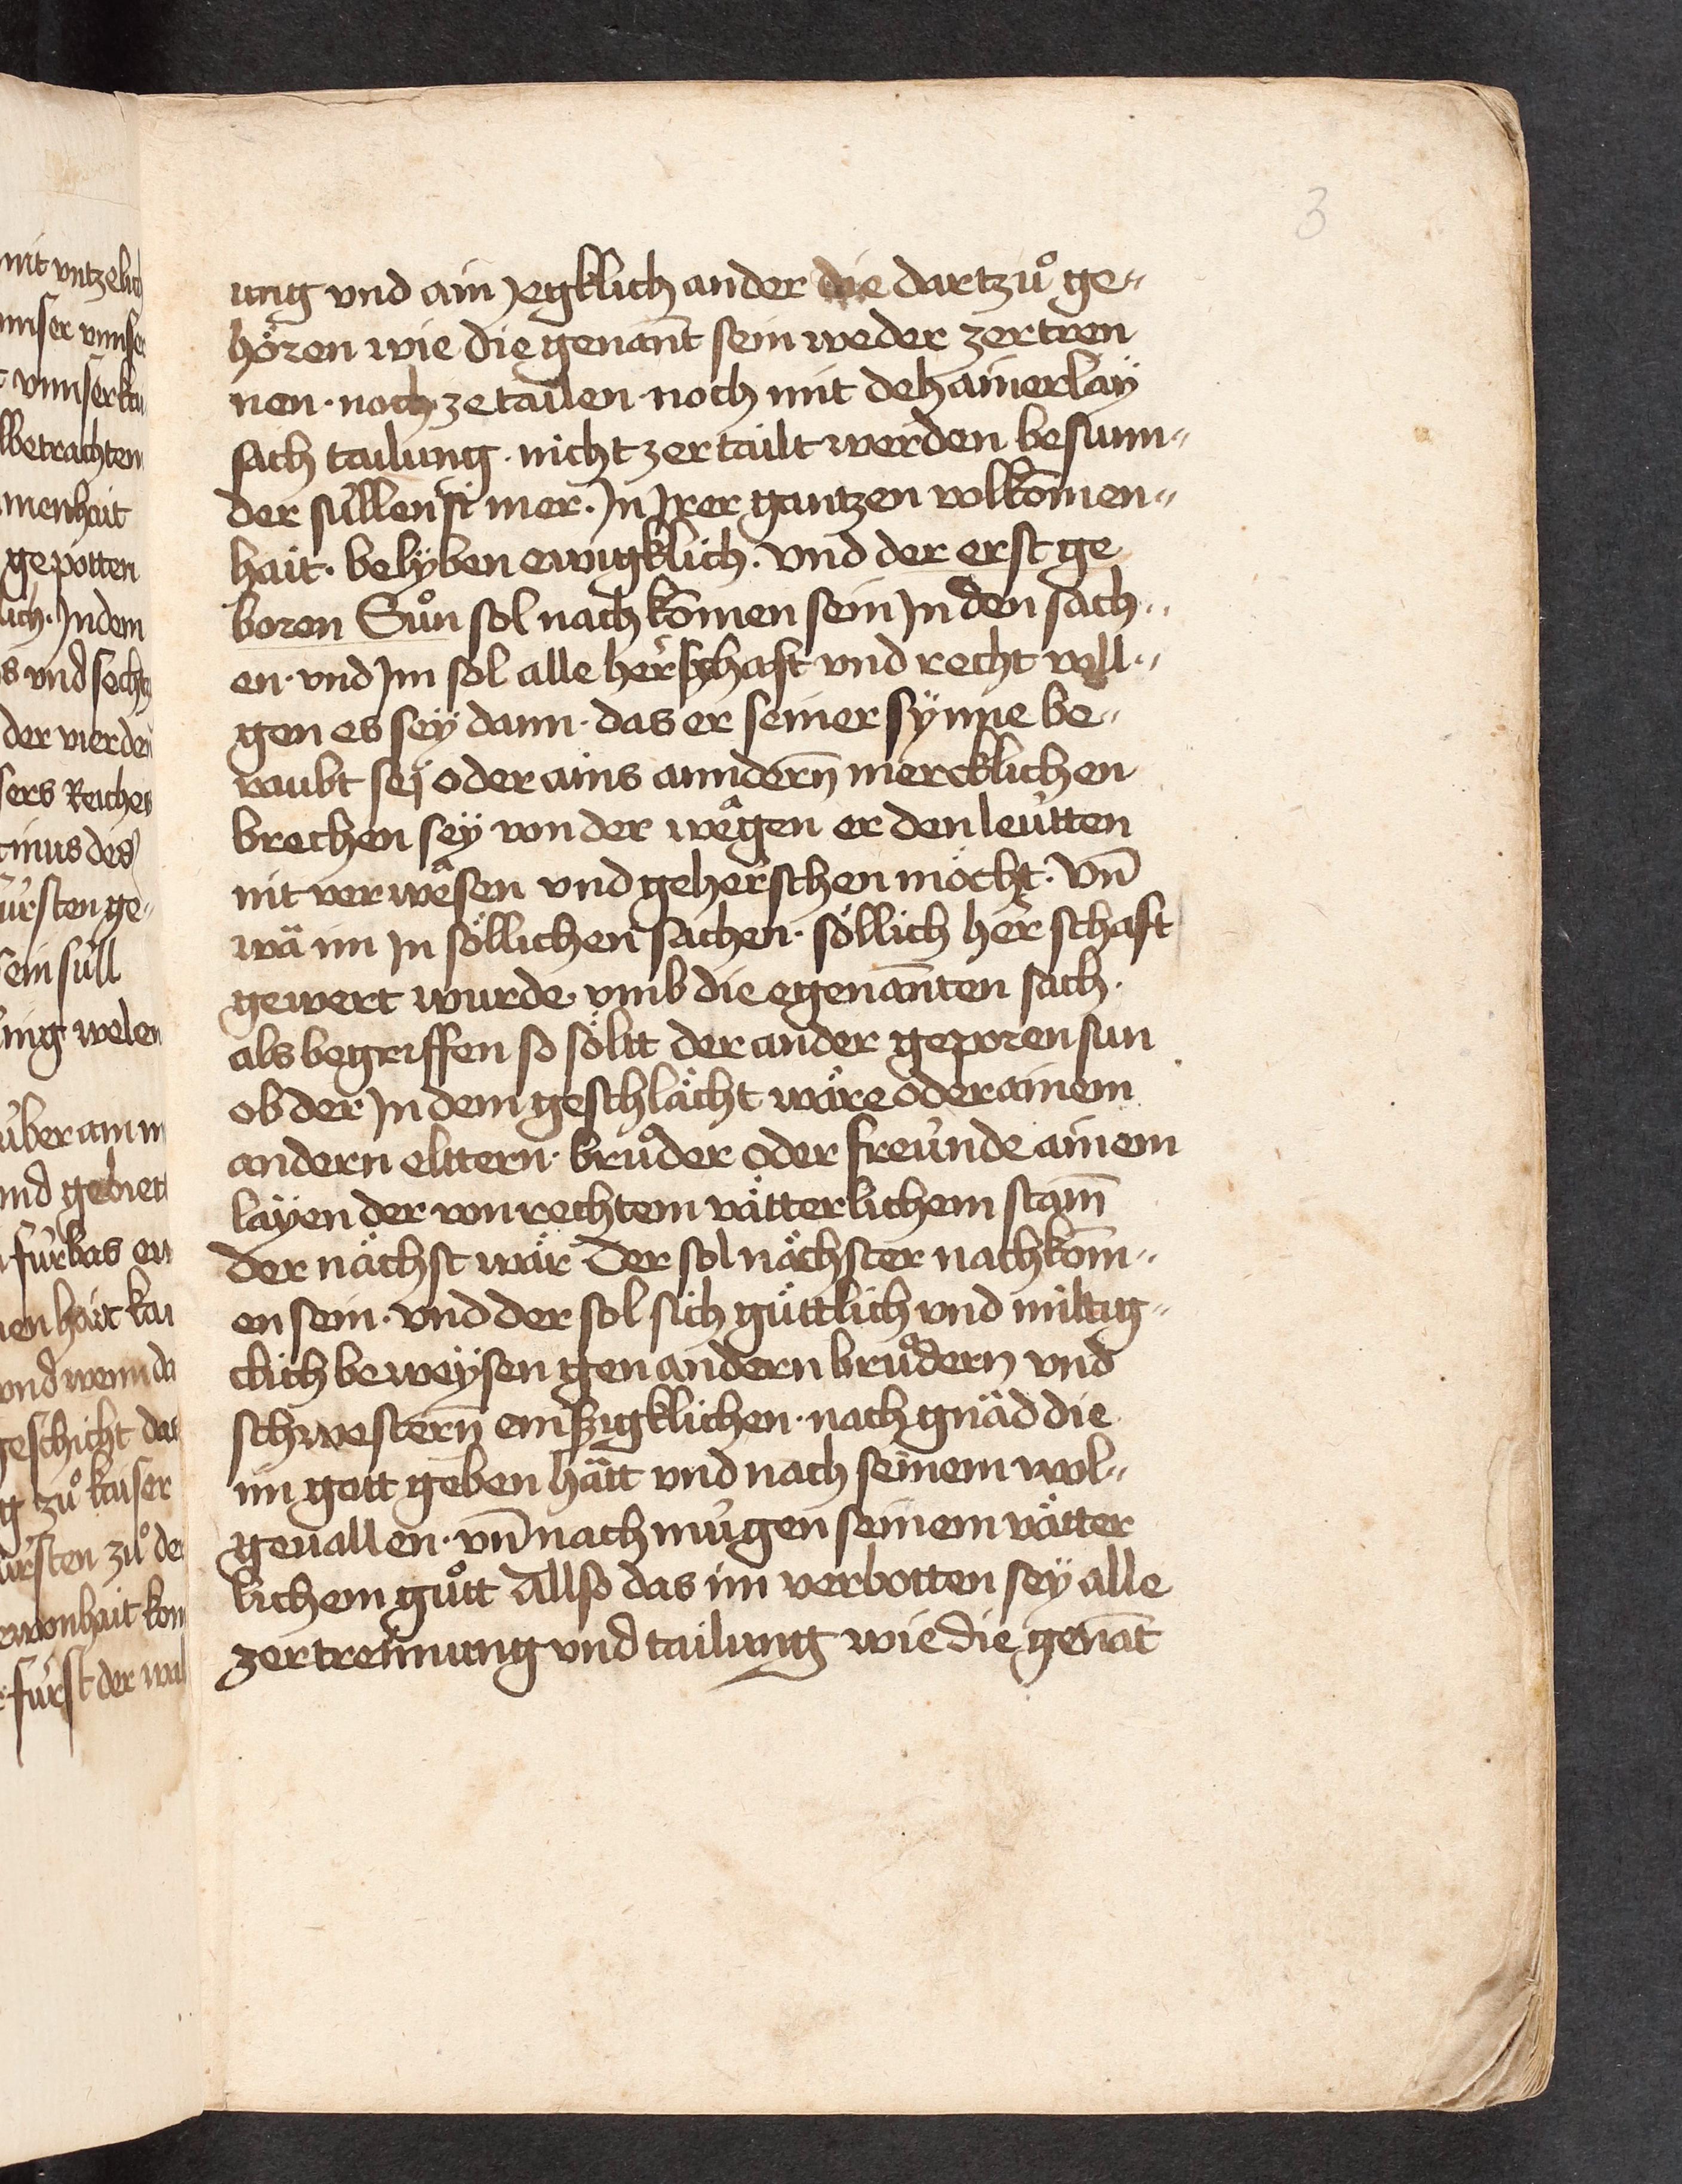 3
ung vnd ain yegklich ander die dartzuͦ ge„
hören wie die genant̄ sein weder zertren
nen · noch ze tailen · noch mit dehainerlaÿ
sach tailung · nicht zertailt werden besunn„
der süllen si mer · Jn Jrer gantzen volkōmen„
hait · belÿben ewigklich · vnd der erst ge
boren Suͦn sol nachkōmen sein Jn den sach„
en · vnd Jm sol alle hërschaft vnd recht voll„
gen es seÿ dann · das er seiner sÿnne be„
raubt sej oder ains anndern̄ mercklichen
brechen seÿ von der wêgen er den leütten
nit verwêsen vnd gehërschen möcht · Vn̄
wä im Jn söllichen sachen · söllich hërschaft
gewert wurde · vmb die egenan̄ten sach ·
als begriffen so söltt der ander geporen sun
ob der Jn dem geschlächt wäre oder ainem
andern elttern · bruͦder oder freunde ainem
laÿen der von rechtem vätterlichem stam̄
der nächst wär Der sol nächster nachkom̄„
en sein · vnd der sol sich güttlich vnd miltig„
clich beweÿsen gen andern bruͦdern vnd
schwestern̄ emßigklichen · nach gnäd die
im gott geben hätt vnd nach seinem wol„
geuallen · vn̄ nach mügen seinem vätter
lichem guͦtt Allso das im verbotten seÿ alle
zertrennung vnd tailung wie die genāt
mit vntzelich
vnnser kai
betrachten
menhait
gepotten
lich · Jn dem
s vnd sech
der vierden
sers Reiches
tinus des
fürsten ge„
sein süll
nig welen
über ain
vnd gebiet
fürbas
enhait kai
vnd wenn da
geschicht das
g zuͦ kaiser
ürsten zuͦ de
ewonhait kom
fürst der wal